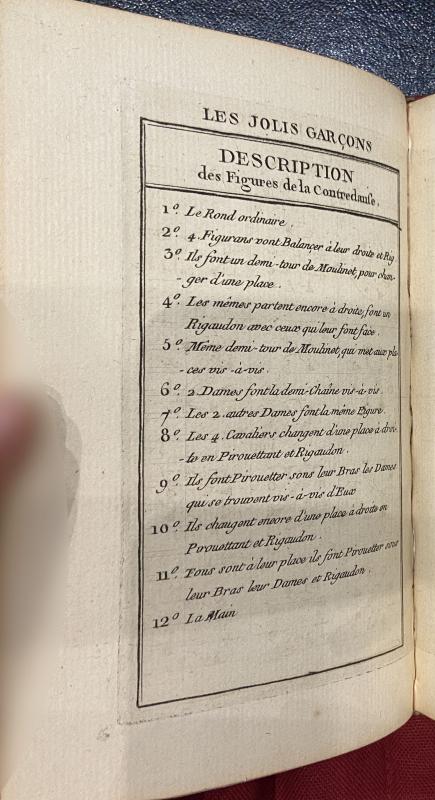 LES JOLIS GARÇONS
DESCRIPTION
des Figures de la Contredanse.
1º. Le Rond ordinaire.
2º. 4. Figurans vont Balançer à leur droite et Rig
3º. Ils font un demi-tour de Moulinet, pour chan-
-ger d'une place.
4º. Les mêmes partent encore à droite, font un
Rigaudon avec ceux qui leur font face.
5º. Même demi-tour de Moulinet, qui met aux pla-
-ces vis-à-vis.
6º. 2. Dames font la demi-Chaîne vis-à-vis.
7º. Les 2. autres Dames font la même Figure.
8º. Les 4. Cavaliers changent d'une place à droi-
-te en Pirouettant et Rigaudon.
9º. Ils font Pirouetter sous leur Bras les Dames
qui se trouvent vis-à-vis d'Eux
10º. Ils changent encore d'une place à droite en
Pirouettant et Rigaudon.
11º. Tous sont à leur place ils font Pirouetter sous
leur Bras leur Dames et Rigaudon.
12º La Main